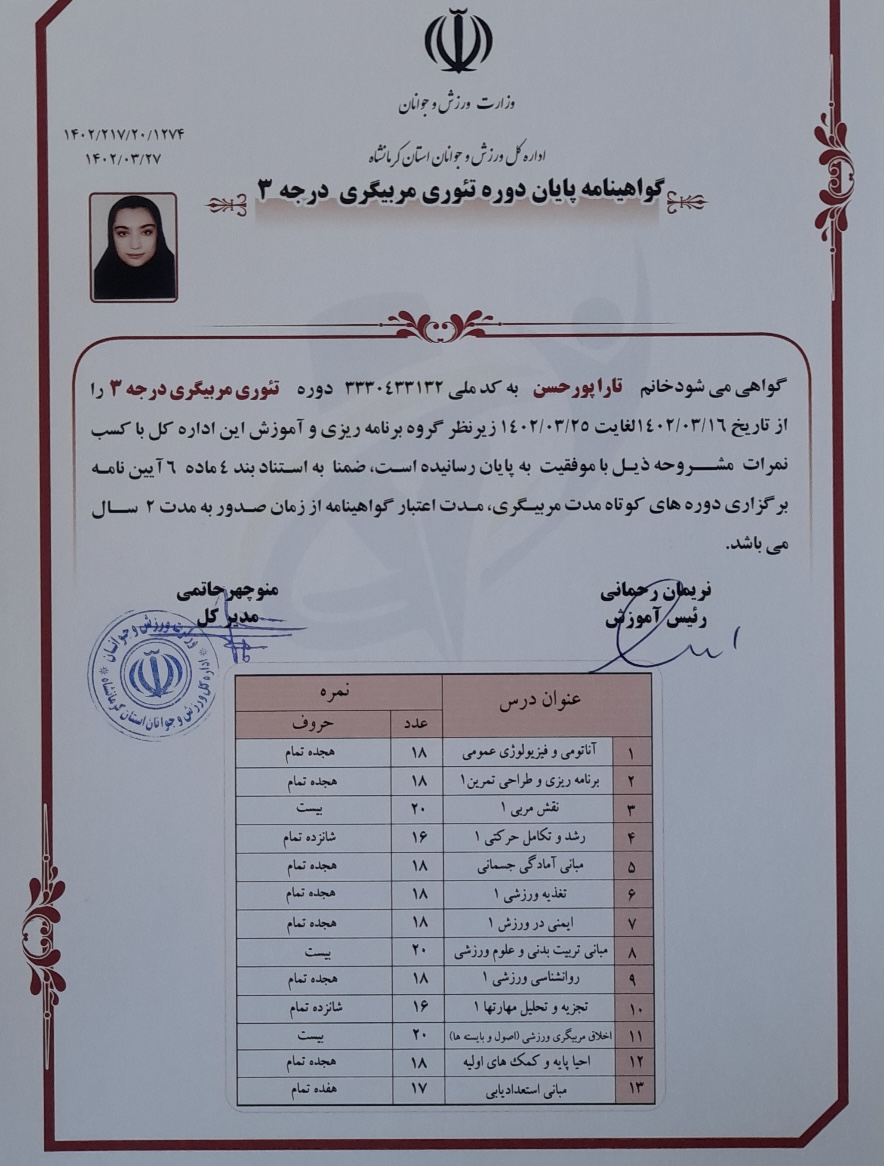 وزارت ورزش و جوانان
۱۴۰۲/۲۱۷/۲۰/۱۲۷۴
اداره کل ورزش و جوانان استان کرمانشاه
۱۴۰۲/۰۳/۲۷
گواهینامه پایان دوره تئوری مربیگری درجه ۳
گواهی می شودخانم تارا پورحسن به کد ملی ۳۳۳۰٤۳۳۱۳۲ دوره تئوری مربیگری درجه ۳ را
از تاریخ ۱٤۰۲/۰۳/۱٦لغایت ۱٤۰۲/۰۳/۲۵ زیرنظر گروه برنامه ریزی و آموزش این اداره کل با کسب
نمرات مشـــروحه ذیـل با موفقیت به پایان رسانیده اسـت، ضمنا به استناد بند ٤ ماده ٦ آیین نامـه
برگزاری دوره های کوتاه مدت مربیـگری، مـدت اعتبار گواهینامه از زمان صـدور به مدت ۲ ســال
می باشد.
نریمان رحمانی
رئیس آموزش
منوچهر حاتمی
مدیر کل
وزارت ورزش و جوانان
اداره کل ورزش و جوانان استان کرمانشاه
عنوان درس نمره
عدد حروف
۱ آناتومی و فیزیولوژی عمومی ۱۸ هجده تمام
۲ برنامه ریزی و طراحی تمرین۱ ۱۸ هجده تمام
۳ نقش مربی ۱ ۲۰ بیست
۴ رشد و تکامل حرکتی ۱ ۱۶ شانزده تمام
۵ مبانی آمادگی جسمانی ۱۸ هجده تمام
۶ تغذیه ورزشی ۱ ۱۸ هجده تمام
۷ ایمنی در ورزش ۱ ۱۸ هجده تمام
۸ مبانی تربیت بدنی و علوم ورزشی ۲۰ بیست
۹ روانشناسی ورزشی ۱ ۱۸ هجده تمام
۱۰ تجزیه و تحلیل مهارتها ۱ ۱۶ شانزده تمام
۱۱ اخلاق مربیگری ورزشی (اصول و بایسته ها) ۲۰ بیست
۱۲ احیا پایه و کمک های اولیه ۱۸ هجده تمام
۱۳ مبانی استعدادیابی ۱۷ هفده تمام